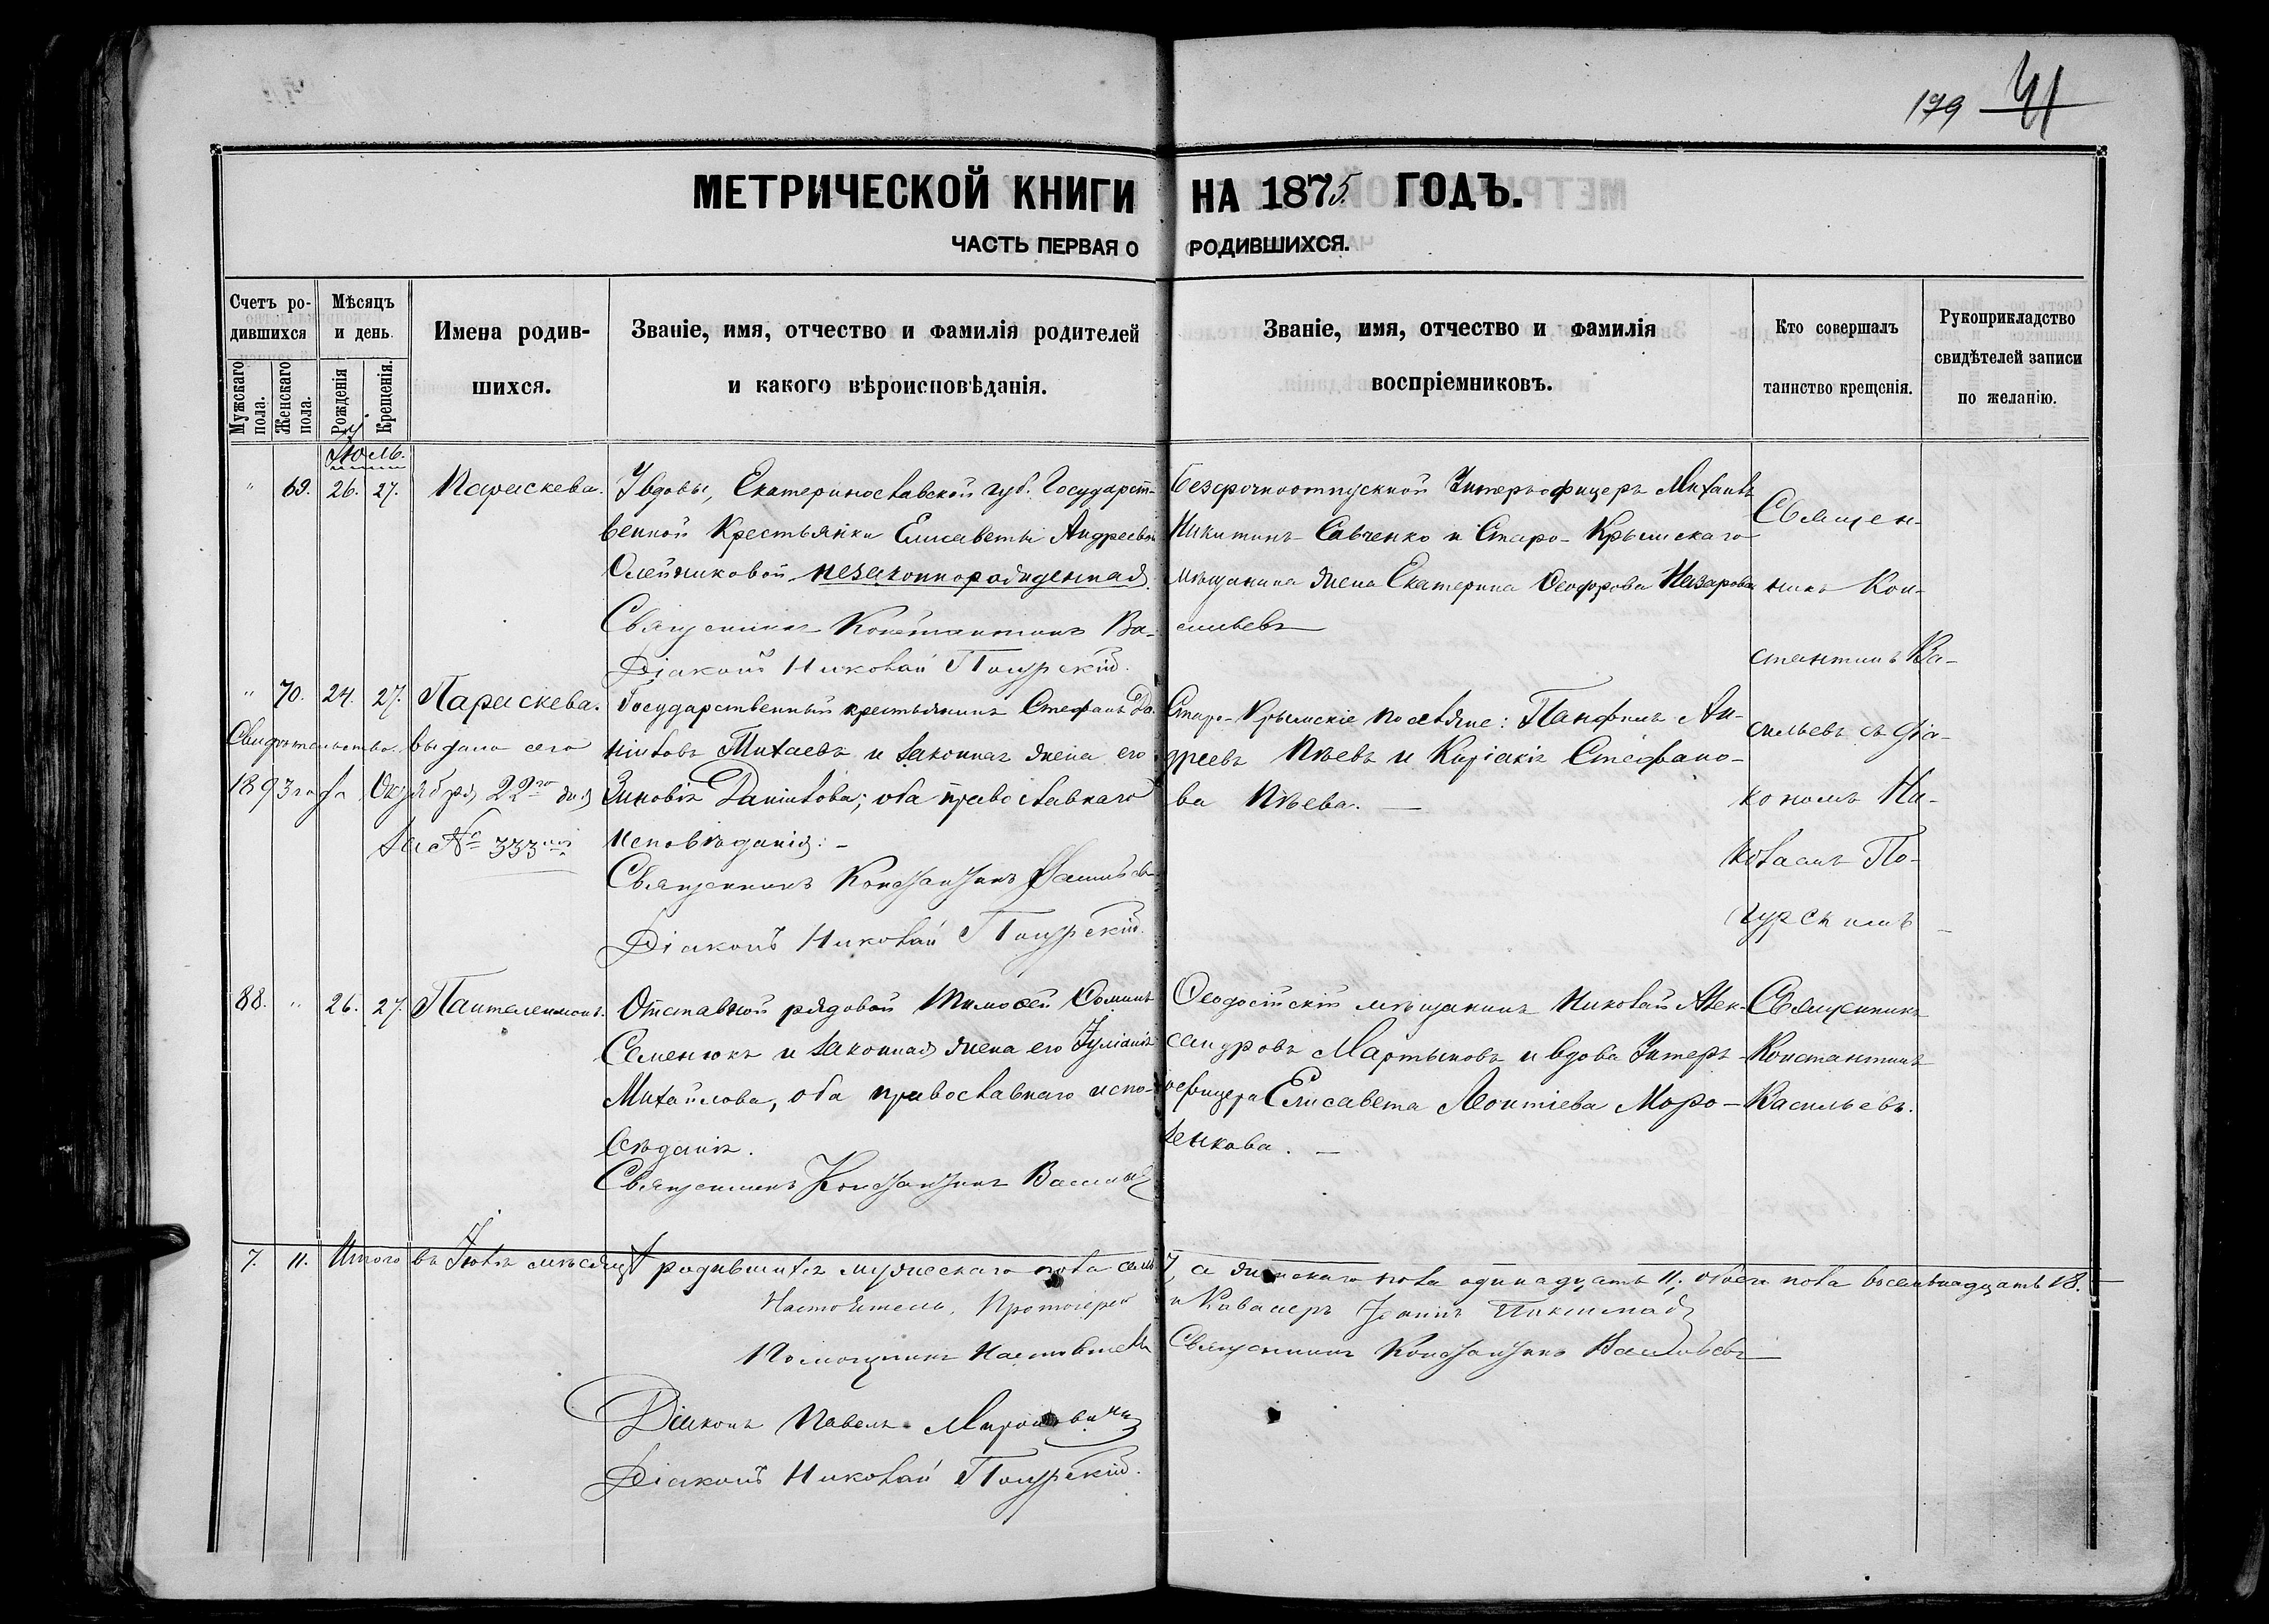 179 41
МЕТРИЧЕСКОЙ КНИГИ НА 1875 ГОДЪ.
ЧАСТЬ ПЕРВАЯ О РОДИВШИХСЯ.
Счетъ ро-
дившихся
Мужскаго пола.
Женскаго пола.
Мѣсяцъ
и день.
Рожденія
Крещенія.
Имена родив-
шихся.
Званіе, имя, отчество и фамилія родителей
и какого вѣроисповѣданія.
Званіе, имя, отчество и фамилія
воспріемниковъ.
Кто совершалъ
таинство крещенія.
Рукоприкладство
свидѣтелей записи
по желанію.
Іюль.
" 69. 26. 27. Параскева.
У вдовы, Екатеринославской губ. Государст-
венной Крестьянки Елисаветы Андреевой
Олейниковой незаконнорожденная.
Священникъ Константинъ Ва-
сильевъ
Діаконъ Николай Погурскій.
Безсрочноотпускной Унтеръофицеръ Михаилъ
Никитинъ Савченко и Старо-Крымскаго
мѣщанина жена Екатерина Ѳеодорова Назарова
Священ-
никъ Кон-
стантинъ Ва-
сильевъ съ Діа-
кономъ Ни-
колаемъ По-
гурскимъ
" 70. 24. 27. Параскева.
Свидѣтельство выдано сего
1893 года Октября 22го дня
за № 333
Государственный крестьянинъ Стефанъ Да-
ніиловъ Михаевъ и законная жена его
Зиновія Даніилова; оба православнаго
исповѣданія:
Священникъ Константинъ Васильевъ
Діаконъ Николай Погурскій.
Старо-Крымскіе поселяне: Панфилъ Ан-
дреевъ и Киріакія Стефано-
ва
88. " 26. 27. Пантелеимонъ.
Отставной рядовой Тимоѳей Ѳоминъ
Семенюкъ и законная жена его Іуліанія
Михайлова, оба православнаго испо-
вѣданія.
Священникъ Константинъ Васильевъ
Ѳеодосійскій мѣщанинъ Николай Алек-
сандровъ Мартыновъ и вдова Унтеръ-
офицера Елисавета Леонтіева Моро-
зенкова.
Священникъ
Константинъ
Васильевъ.
7. 11. Итого въ Іюлѣ мѣсяцѣ родившихся мужескаго пола семь 7, а женскаго пола одинадцать 11; обоего пола восемьнадцать 18.
Настоятель, Протоіерей и Кавалеръ Іоаннъ
Помощникъ Настоятеля Священникъ Константинъ Васильевъ
Діаконъ Павелъ
Діаконъ Николай Погурскій.